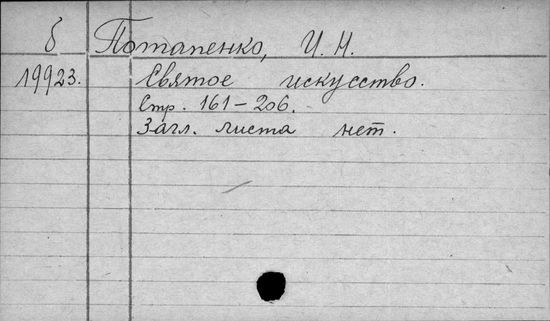 б Потапенко, И. Н.
19923. Святое искусство.
Стр. 161-206.
Загл. листа нет.